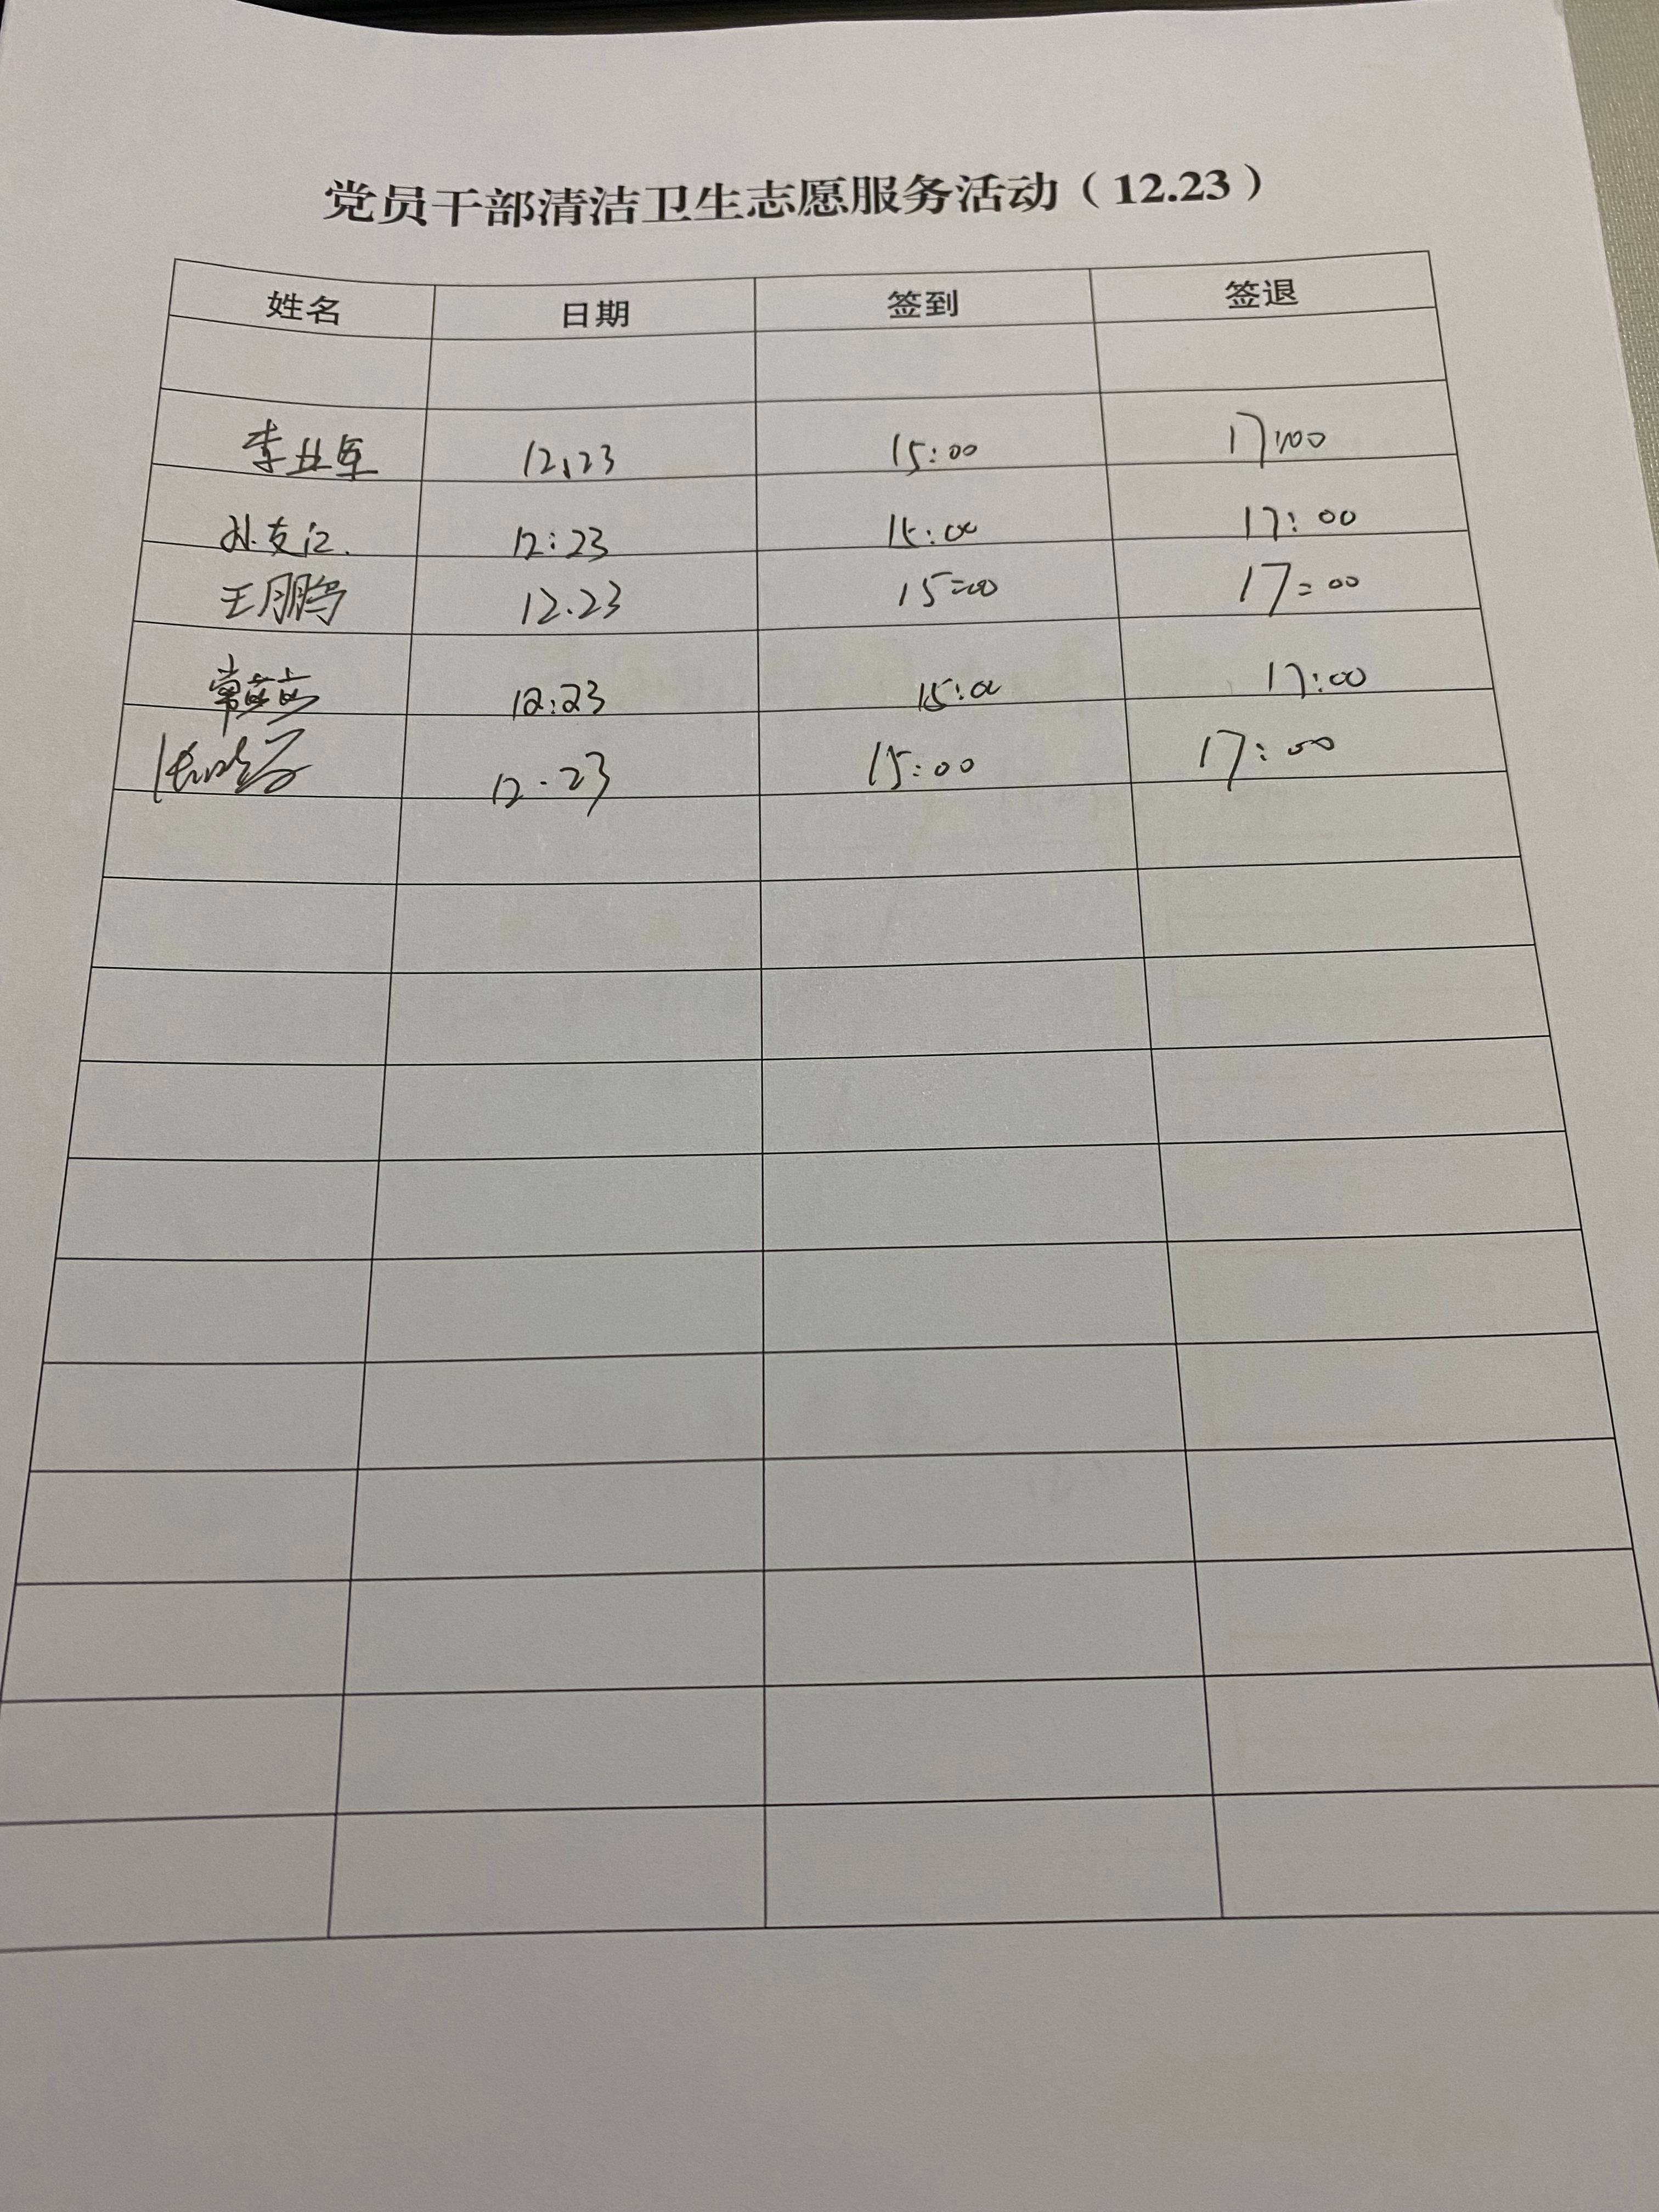 党员干部清洁卫生志愿服务活动（12.23）
姓名 日期 签到 签退
李业军 12.23 15:00 17:00
孙友江. 12:23 15:00 17:00
王鹏 12.23 15=00 17=00
常 12:23 15:00 17:00
12.23 15:00 17:00